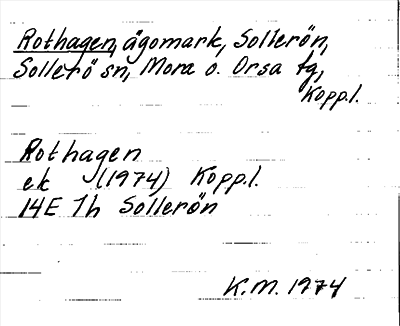 Rothagen, ägomark, Sollerön,
Sollerö sn, Mora o. Orsa tg,
Kopp.l.
Rothagen
ek (1974) Kopp.l.
14E 7h Sollerön
K.M. 1974